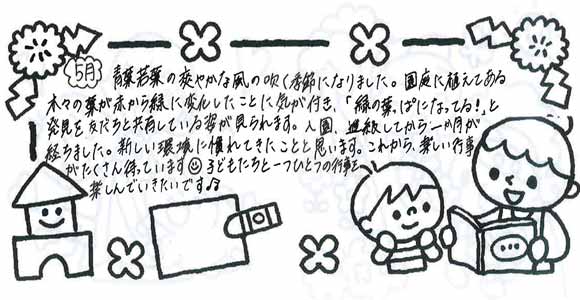 5月
青葉若葉の爽やかな風の吹く季節になりました。園庭に植えてある
木々の葉が赤から緑に変化したことに気が付き、「緑の葉っぱになってる!」と
発見を友だちと共有している姿が見られます。入園、進級してから一か月が
経ちました。新しい環境に慣れてきたことと思います。これから、楽しい行事
がたくさん待っています☺子どもたちと一つひとつの行事を
楽しんでいきたいです♫